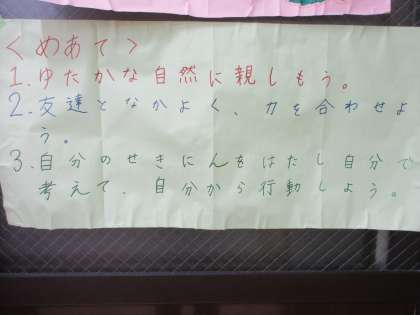 ＜めあて＞
1. ゆたかな自然に親しもう。
2. 友達となかよく、力を合わせよ
う。
3. 自分のせきにんをはたし自分で
考えて、自分から行動しよう。